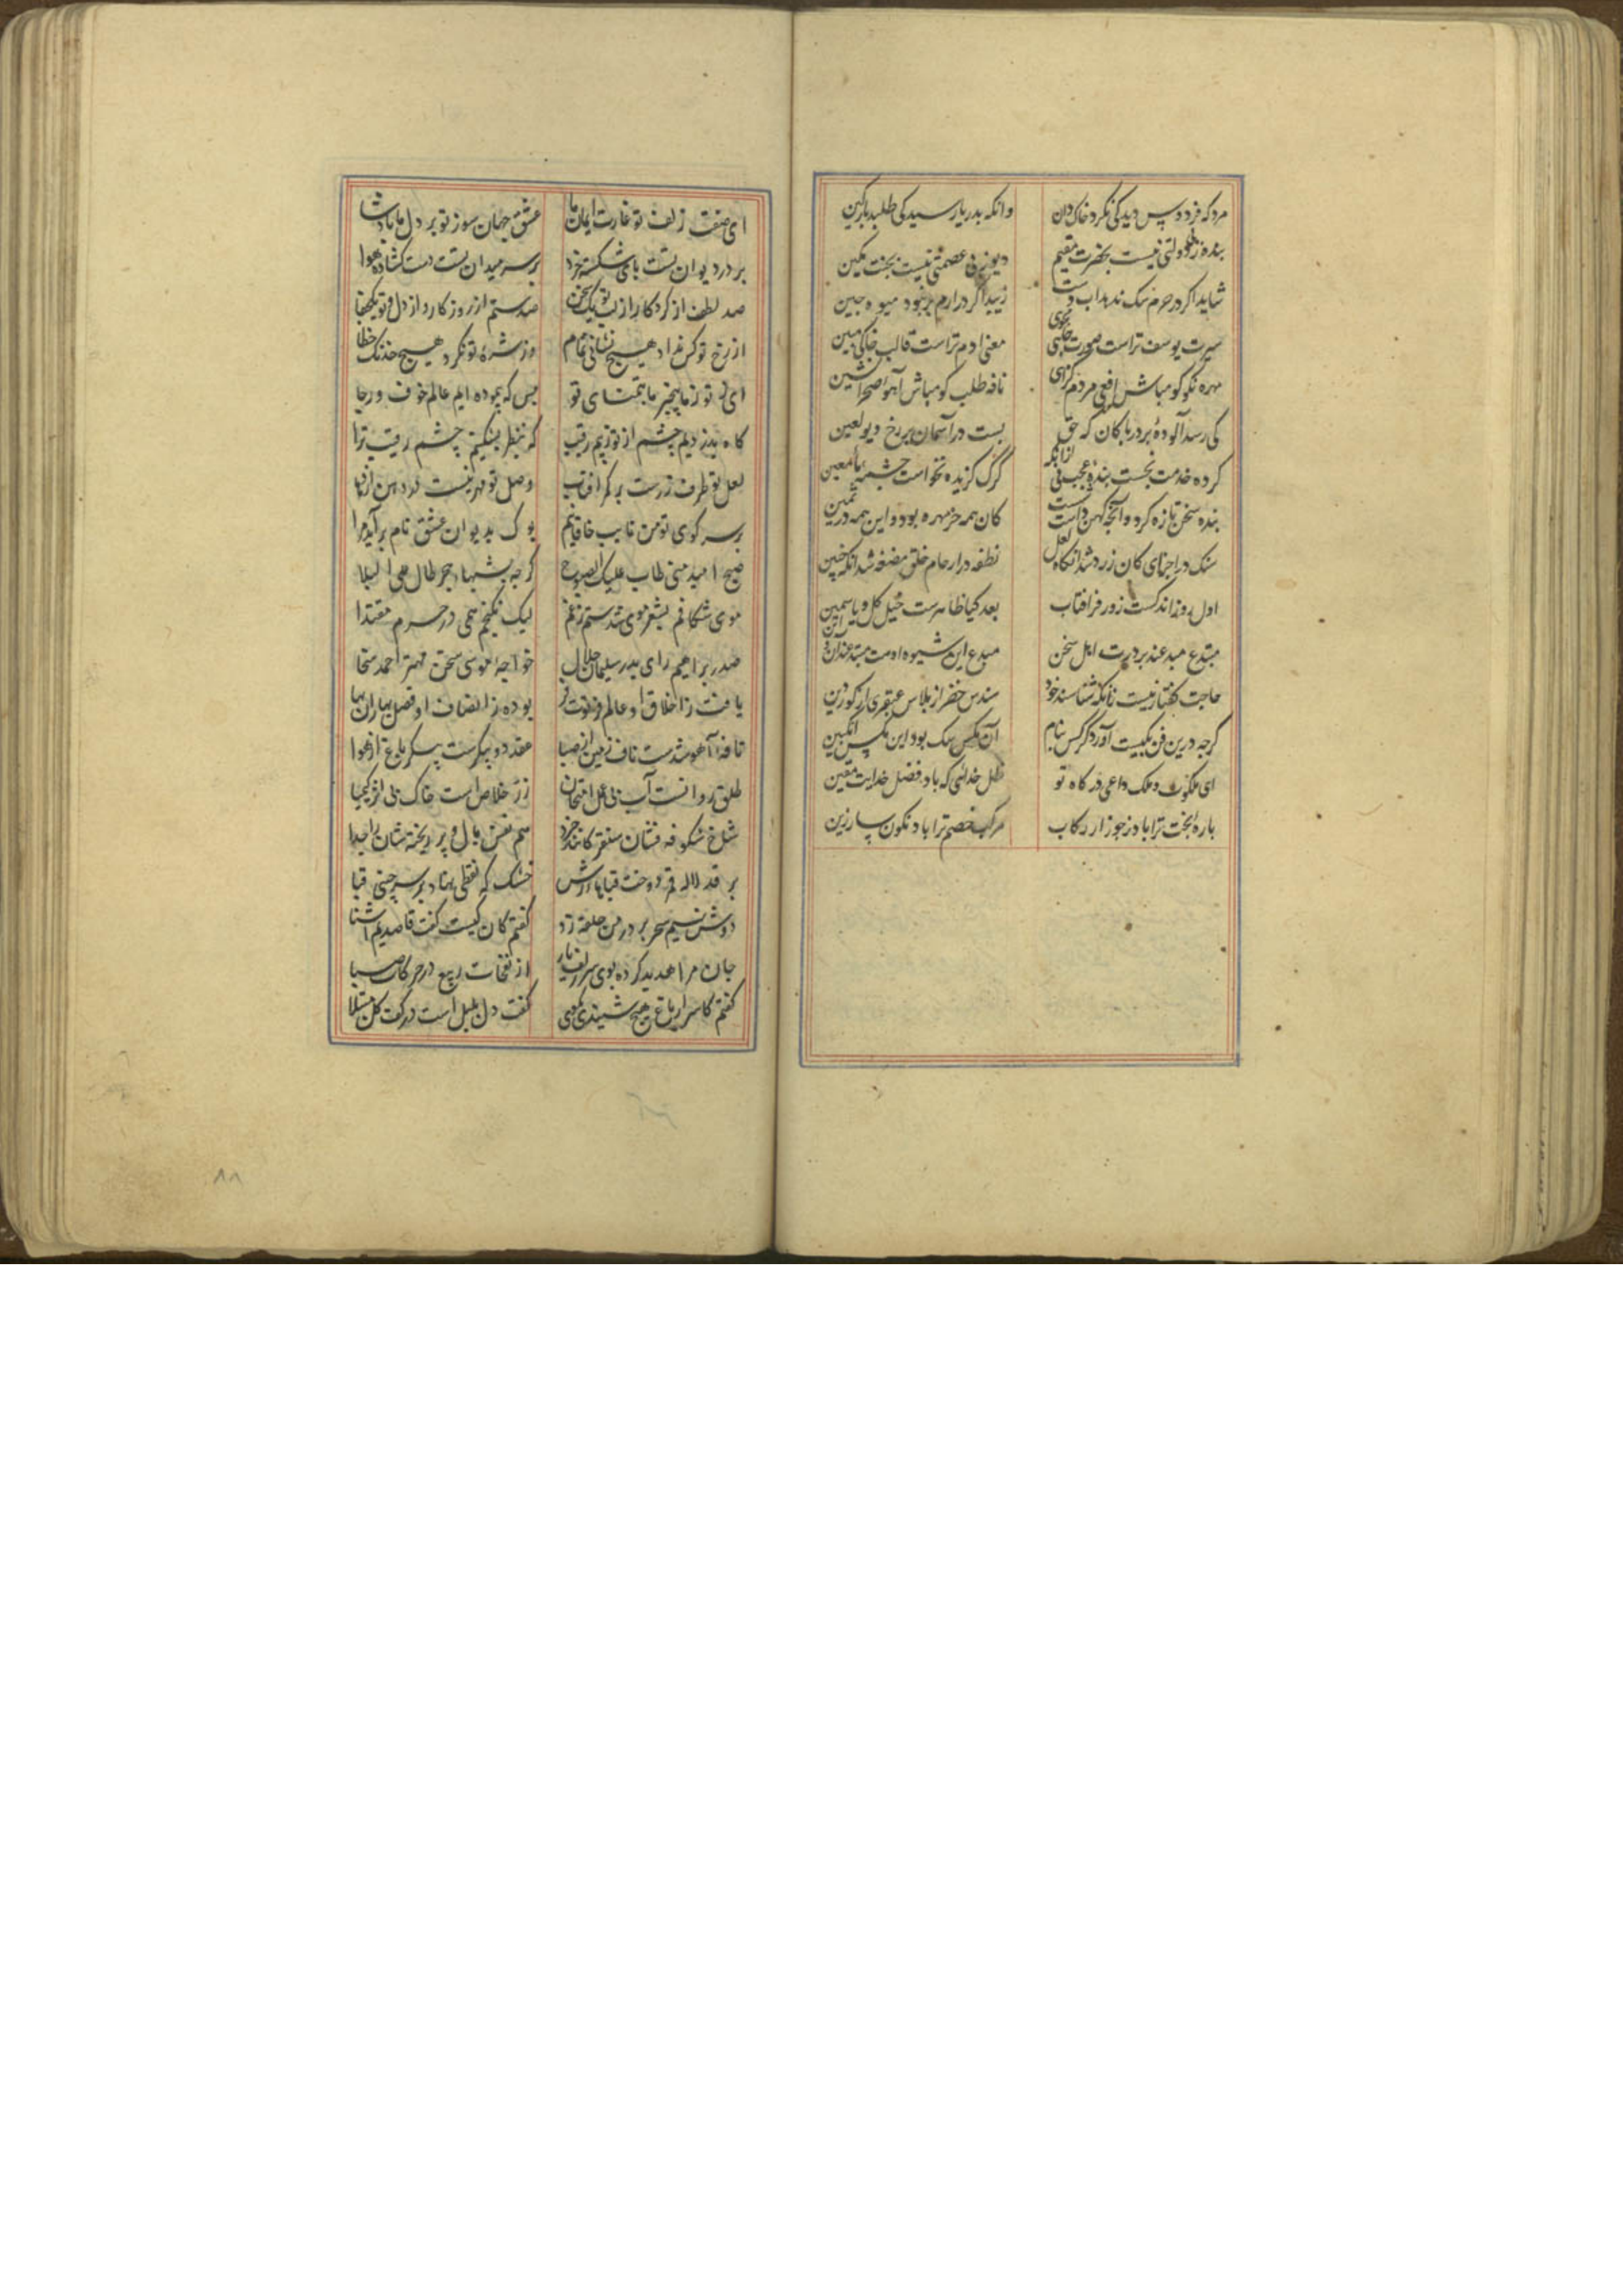 مرد که فردوس دید کی نکرد خاکدان وانکه بدریا رسید کی طلبد پارکین
بنده ز بی دولتی نیست بحضرت مقیم دیو ز بی عصمتی نیست بجنت مکین
شاید اکر در حرم سک ندهد آب دست زیبد اکر در ارم بز نبود میوه چین
سیرت یوسف تراست صورت چاهی مجوی معنی آدم تراست قالب خاکی مبین
مهره نکر کو مباش افعی مردم کزای نافه طلب کو مباش آهو صحرانشین
کی رسد آلودهٔ بر در پاکان که حق بست در آسمان بر رخ دیو لعین
کرده خدمت بجست بنده و عجب نی ازانکه کرک کزیده نخواست چشمه ماء معین
بنده سخن تازه کرد وانچه کهن داشت شست کان همه خرمهره بود واین همه در ثمین
سنک در اجزای کان زرد شد آنکاه لعل نطفه در ارحام خلق مضغه شد آنکه جنین
اول روز اندکست زور فر افتاب بعد کیا ظاهرست خیل کل و یاسمین
مبتدع مبدعند بر درت اهل سخن مبدع این شیوه اوست مبتدعند آن و این
حاجت کفتار نیست زانکه شناسد خرد سندس خضر از پلاس عبقری از کوردین
کرچه درین فن یکیست آورد کر کس بنام آن مکس سک بود این مکس انکبین
ای ملکوت و ملک داعی درکاه تو ظل خدائی که باد فضل خدایت معین
باره بخت ترا باد ز جوزا رکاب مرکب خصم ترا باد نکون سار زین
ای صفت زلف تو غارت ایمان ما عشق جهان سوز تو بر دل ما پادشا
بر در دیوان تست پای شکسته خرد بر سر میدان تست دست کشاده هوا
صد لطف از کردکار از لب تو یک سخن صد ستم از روزکار از دل تو یک جفا
از رخ تو کس نداد هیچ نشانی تمام وز مژهٔ تو نکرد هیچ خدنک خطا
ای ز تو ز ما بیخبر ما بتمنای تو بس که بپیموده ایم عالم خوف و رجا
کاه بدزدیم چشم از تو ز بیم رقیب که بنظر بشکنیم چشم رقیب ترا
لعل تو طرف زرست بر کمر افتاب وصل تو مهر تبست در دهن اژدها
بر سر کوی تو من نایب خاقانیم بوک بدیوان عشق نام برآید مرا
صبح امید منی طاب علیک الصبوح کرچه بشبهاء هجر طال علی البکا
موی شکافم بشعر موی شدستم ز غم لیک نکنجم همی در حرم مقتدا
صدر براهیم رای بدر سلیمان جلال خواجه موسی سخن مهتر احمد سخا
یافت ز اخلاق او عالم فرتوت فر بوده ز انصاف او فصل بهاران بها
نافه آهو شدست ناف زمین از صبا عقد دو پیکرست پیکر باغ از هوا
طلق روانست آب بی عمل امتحان زر خلاص است خاک بی اثر کیمیا
شاخ شکوفه فشان سنقر کانند خرد هم نفس بال و پر ریخته شان را جدا
بر قد لاله قمر دوخت قباها ز رش خشک که نقطی نهاد بر سر چینی قبا
دوش نسیم سحر بر در من حلقه زد کفتم کان کیست کفت قاصدیم آشنا
جان مرا هدیه کرده بوی سر زلف یار از نفحات ربیع در حرکات صبا
کفتم کاسرار باغ هیچ شنیدی بکوی کفت دل بلبل است در کف کل مبتلا
٨٨